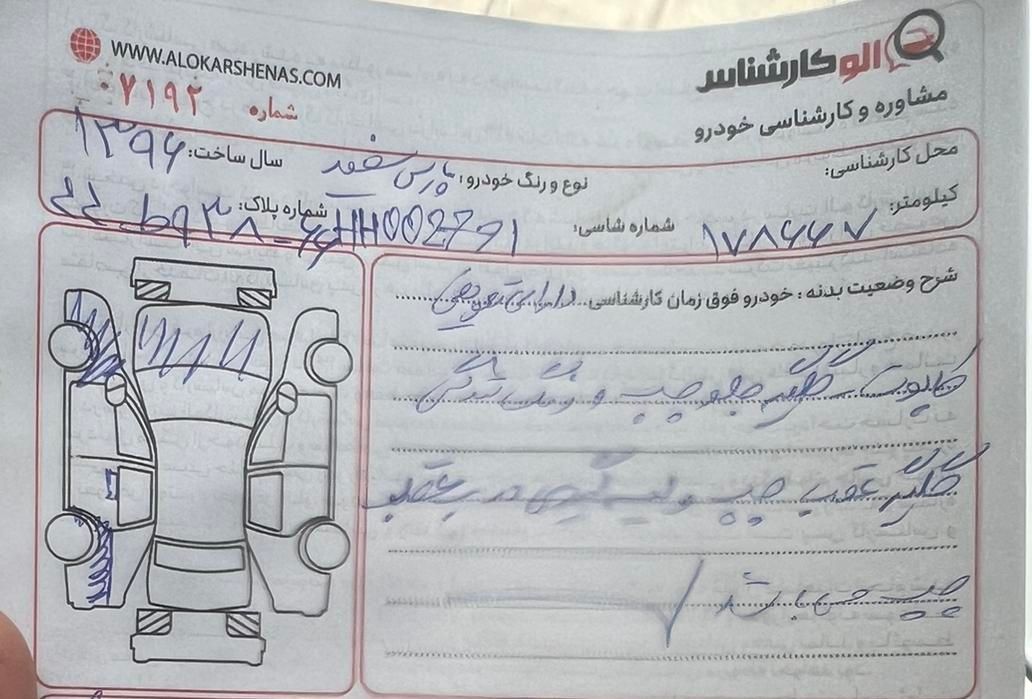 WWW.ALOKARSHENAS.COM
الو کارشناس
مشاوره و کارشناسی خودرو
شماره ۰۷۱۹۲
محل کارشناسی: نوع و رنگ خودرو: پارس سفید سال ساخت: ۱۳۹۶
کیلومتر: ۱۷۸۶۶۷ شماره شاسی: HH002791 شماره پلاک:
شرح وضعیت بدنه: خودرو فوق زمان کارشناسی دارای تعویض
کاپوت گلگیر جلو چپ و رنگ شدگی
گلگیر عقب چپ و لیسه گیری درب عقب
چپ می باشد